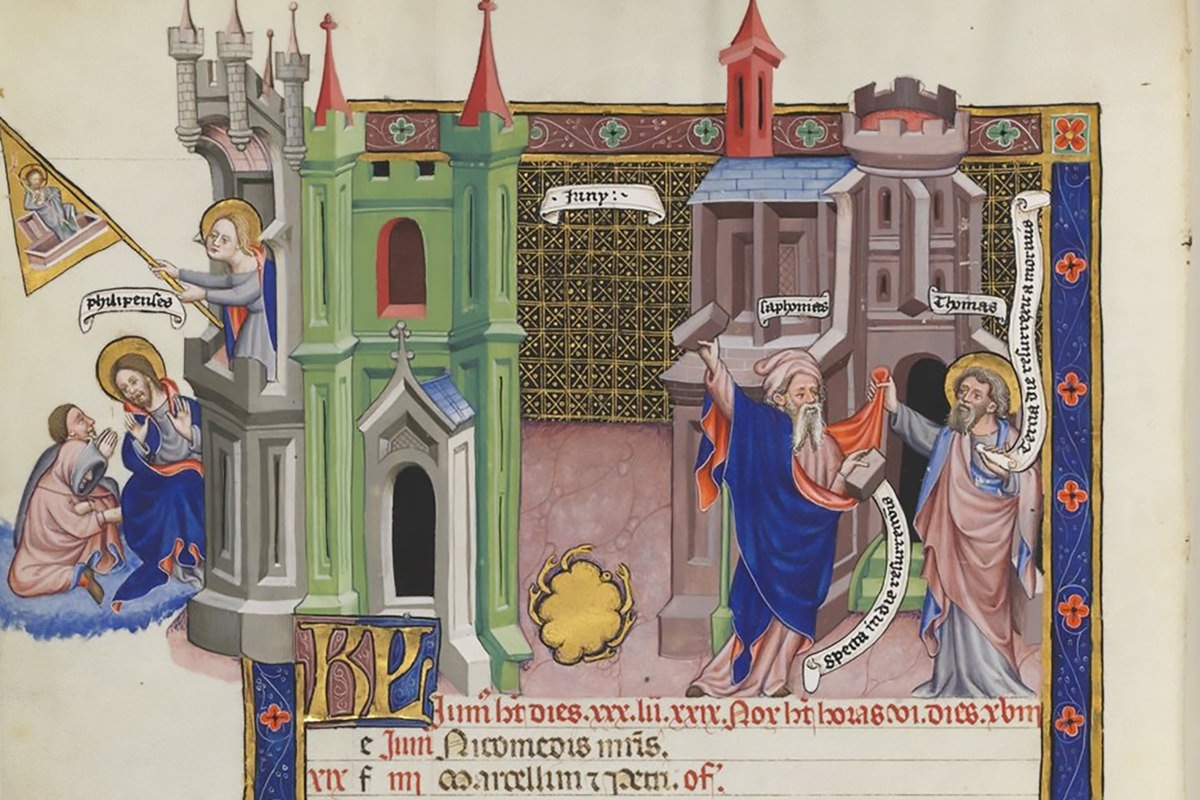 Juny:
philipenses
saphonias
Thomas
Tercia die resurrexit a mortuis
Specta in die resurrectionis
KL Juniꝰ ht dies.xxx.lu.xxix.Nox ht horas.vi.dies.xviii
e Junii Nicomedis mris.
xix f iiii Marcellini ⁊ Petri. of.